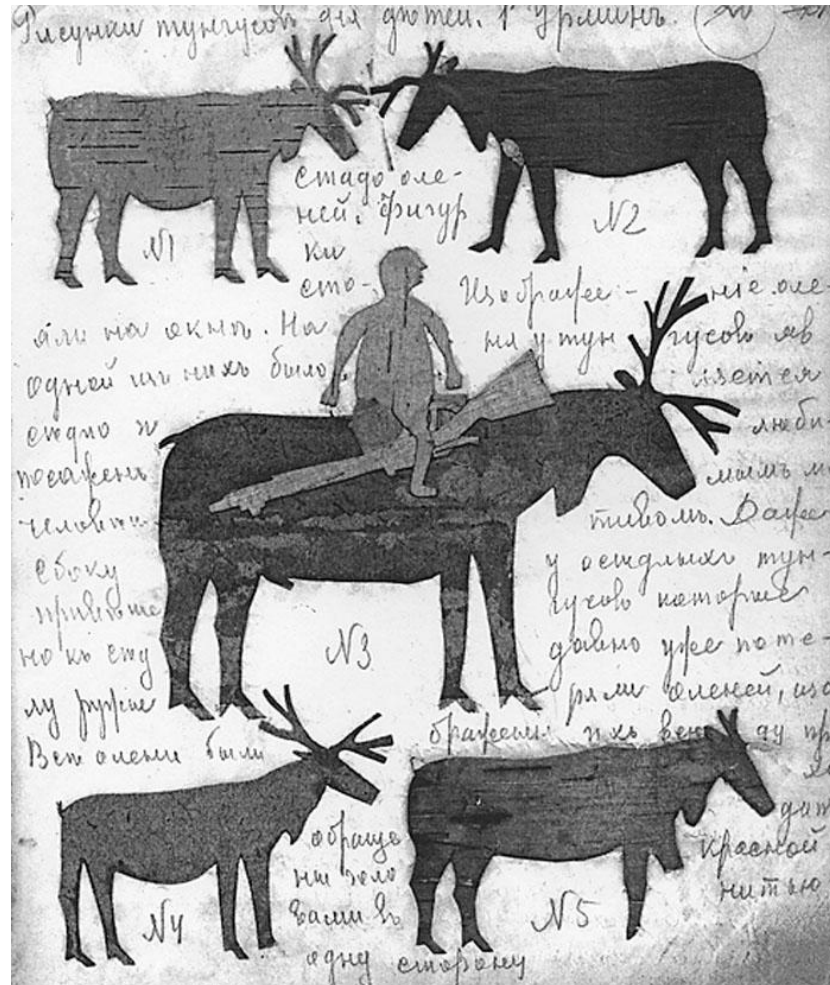 Рисунки тунгусовъ для дѣтей. 20
№1
№2
стадо оле-
ней. Фигур
ки
сто-
яли на окнѣ. На
одной изъ нихъ было
седло и
посаженъ
человѣкъ
сбоку
привѣше
но къ
лу ружье
Всѣ олени были
обраще
ны голо
вами въ
одну сторону
Изображе- ніе оле-
ня у тун гусовъ яв
ляется
люби-
мымъ мо
тивомъ. Даже
у осѣдлыхъ тун-
гусовъ которые
давно уже поте-
ряли оленей, изо
браженія ихъ вез ду пр
дят
красной
нитью
№3
№4
№5